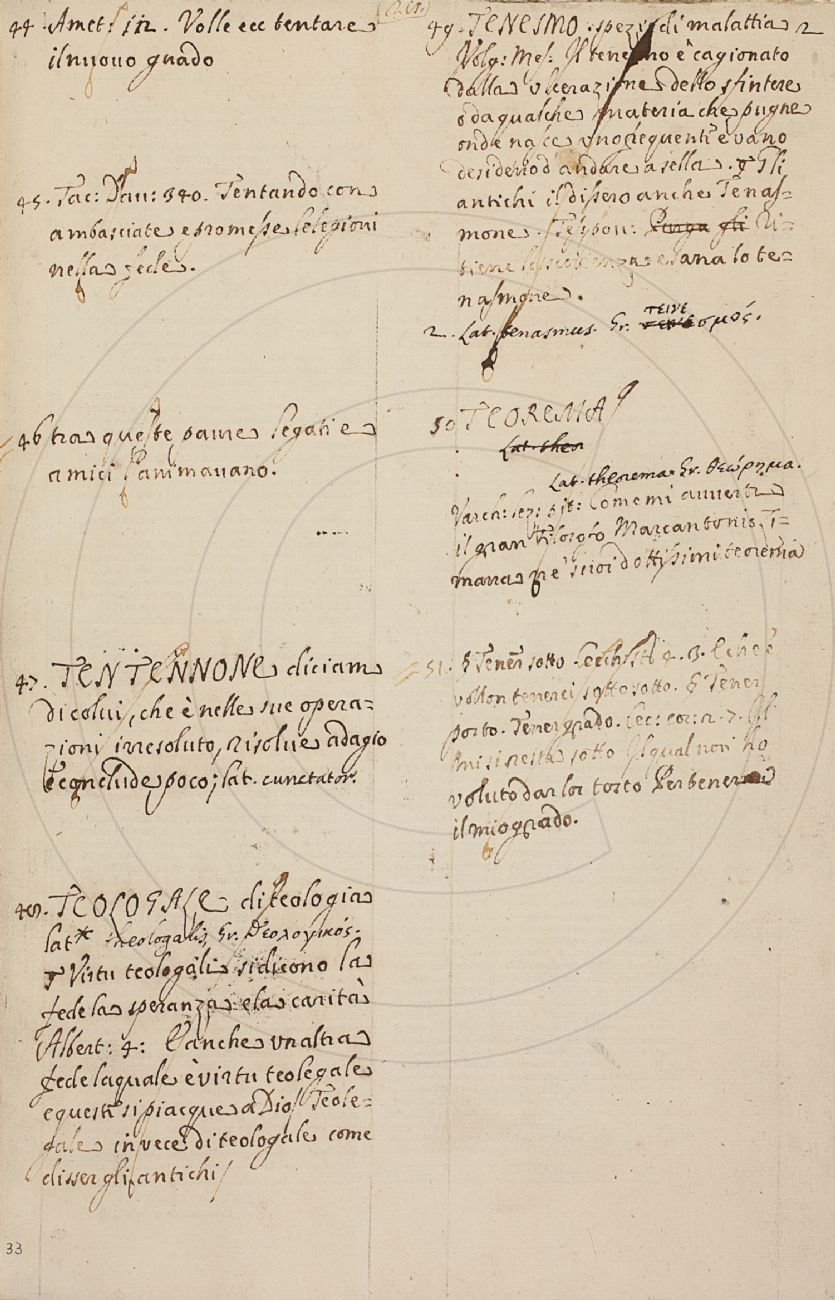 44 Amet: 112. Volle ecc tentare
il nuouo guado
45. Tac: Dau: 340. Tentando con
ambasciate e promesse le legioni
nella fede.
46 tra queste paure legati e
amici l'animauano.
47. TENTENNONE diciam
di colui, che è nelle sue opera=
zioni irresoluto, risolue adagio
e conclude poco; lat. cunctator.
48. TEOLOGALE di teologia
lat. theologalis, Gr. Θεολογικός.
Virtu teologali si dicono la
fede la speranza e la carità
Albert: 4: E anche vn altra
fede laquale è virtu teolegale
e questa si piacque a Dio/ Teole=
gale in vece di teologale come
disser gli antichi/
49. TENESMO. spezie di malattia 2
Volg: Mes. Il tenesmo è cagionato
dalla vlcerazione dello sfintere
o da qualche materia che pugne
onde nasce vno frequente e vano
desiderio d'andare a sella. Gli
antichi il dissero anche Tenas=
mone. Tes: pou: Purga gli Ri=
tiene la e sana lo te=
nasmone.
2. Lat. tenasmus. Gr. ΤΕΙΝΕσμός.
50 TEOREMA
Lat. theor
Lat. theorema. Gr. θεώρημα.
Varch: lez: 516: Come mi auuertì
il gran Filosofo Marcantonio Zi=
mara ne' suoi dottissimi teoremi
51. Tener sotto. Cecch. 4. 3. E che è
voglion tenerci sotto sotto. Tener
porto. Tener grado. 2. 7. Il
mi si resta sotto Il qual non ho
voluto dar lor torto Per tener
il mio grado.
33